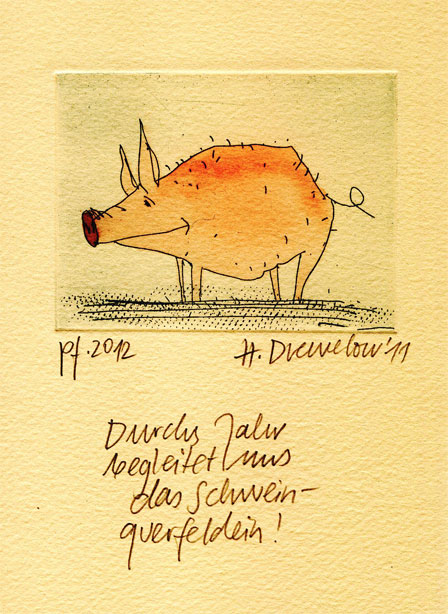 pf. 2012 H. Drewelow '11
Durchs Jahr
begleitet uns
das Schwein–
querfeldein!